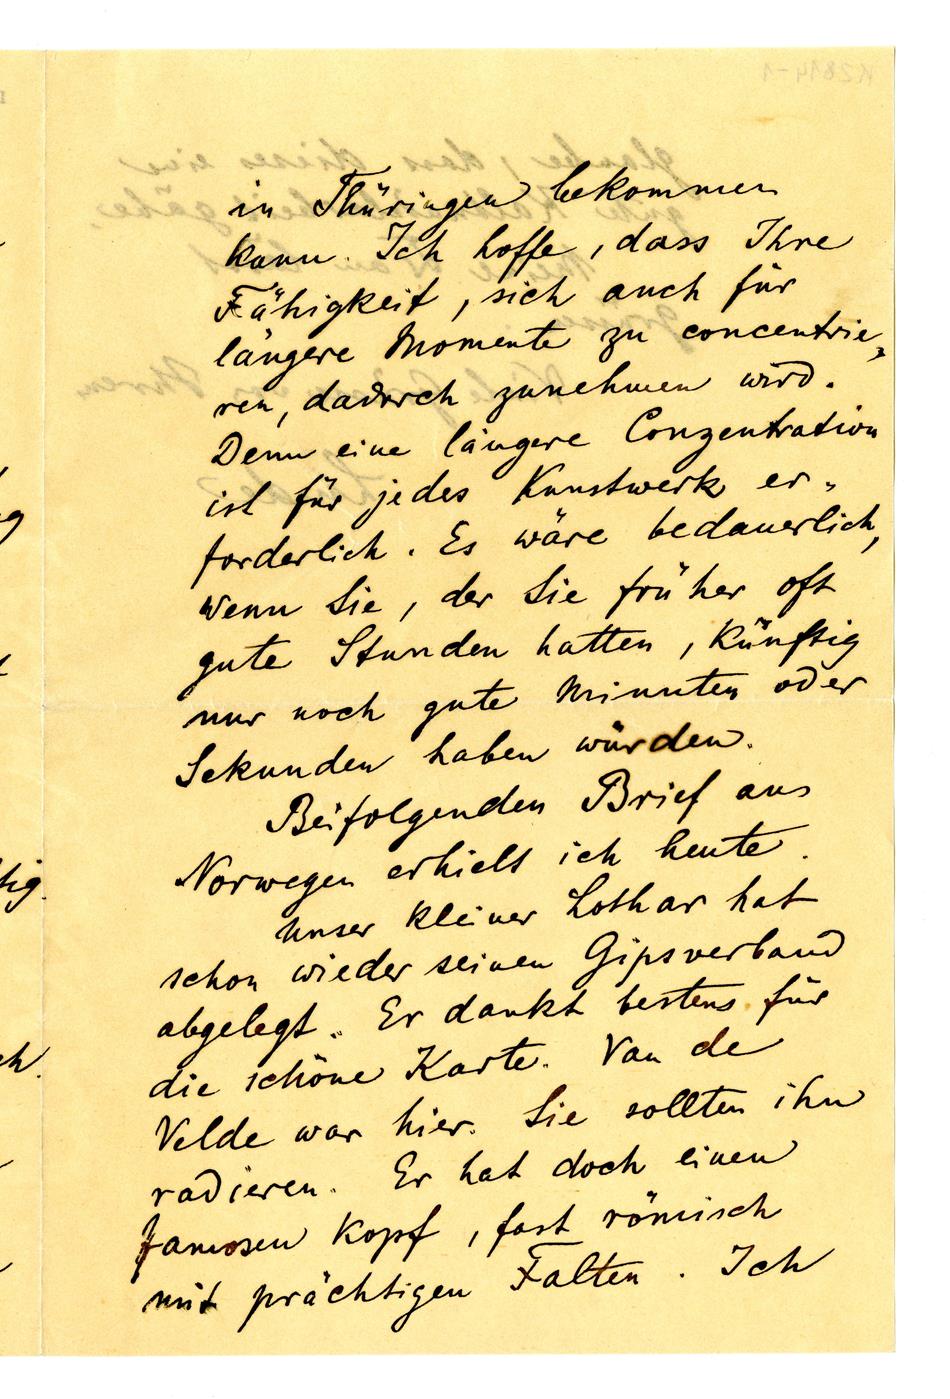 in Thüringen bekommen
kann. Ich hoffe, dass Ihre
Fähigkeit, sich auch für
längere Momente zu concentrie„
ren, dadurch zunehmen wird.
Denn eine längere Conzentration
ist für jedes Kunstwerk er„
forderlich. Es wäre bedauerlich,
wenn Sie, der Sie früher oft
gute Stunden hatten, künftig
nur noch gute Minuten oder
Sekunden haben würden.
Beifolgenden Brief aus
Norwegen erhielt ich heute.
Unser kleiner Lothar hat
schon wieder seinen Gipsverband
abgelegt. Er dankt bestens für
die schöne Karte. Van de
Velde war hier. Sie sollten ihn
radieren. Er hat doch einen
famosen Kopf, fast römisch
mit prächtigen Falten. Ich